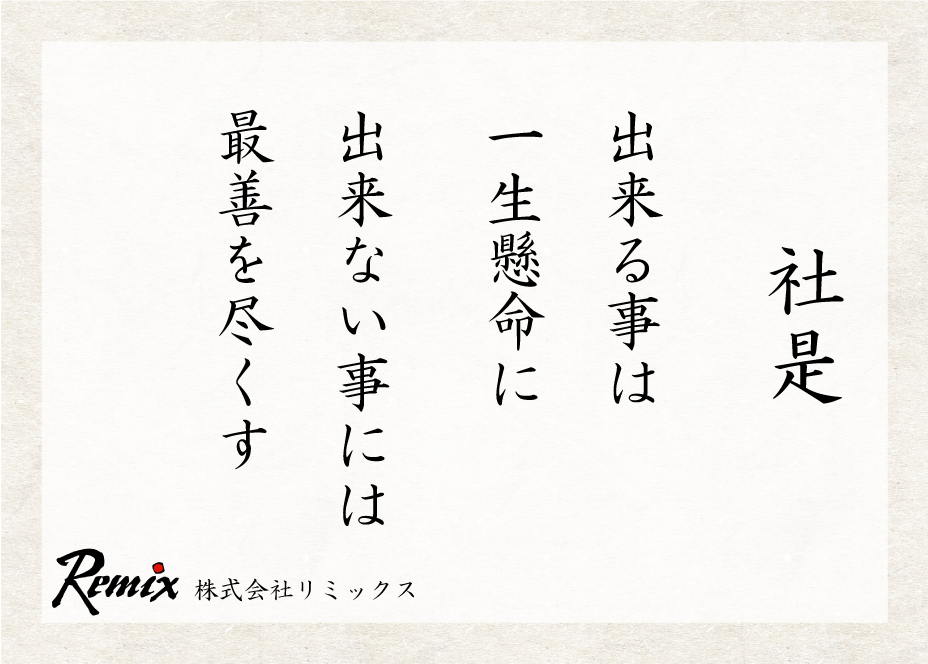 社是
出来る事は
一生懸命に
出来ない事には
最善を尽くす
Remix 株式会社リミックス